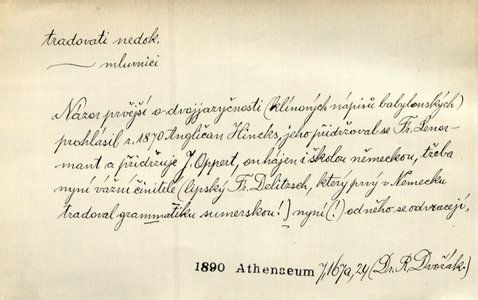 tradovati nedok.
— mluvnici
Názor prvější o dvojjazyčnosti (klínových nápisů babylonských)
prohlásil r. 1870 Angličan Hincks, jeho přidržoval se Fr. Lenor-
mant, a přidržuje J. Oppert, on hájen i školou německou, třeba
nyní vážní činitelé (lepský Fr. Delitzsch, který prvý v Německu
tradoval grammatiku sumerskou!) nyní (!) od něho se odvracejí.
1890 Athenaeum 7, 167a, 24 (Dr. R. Dvořák.)